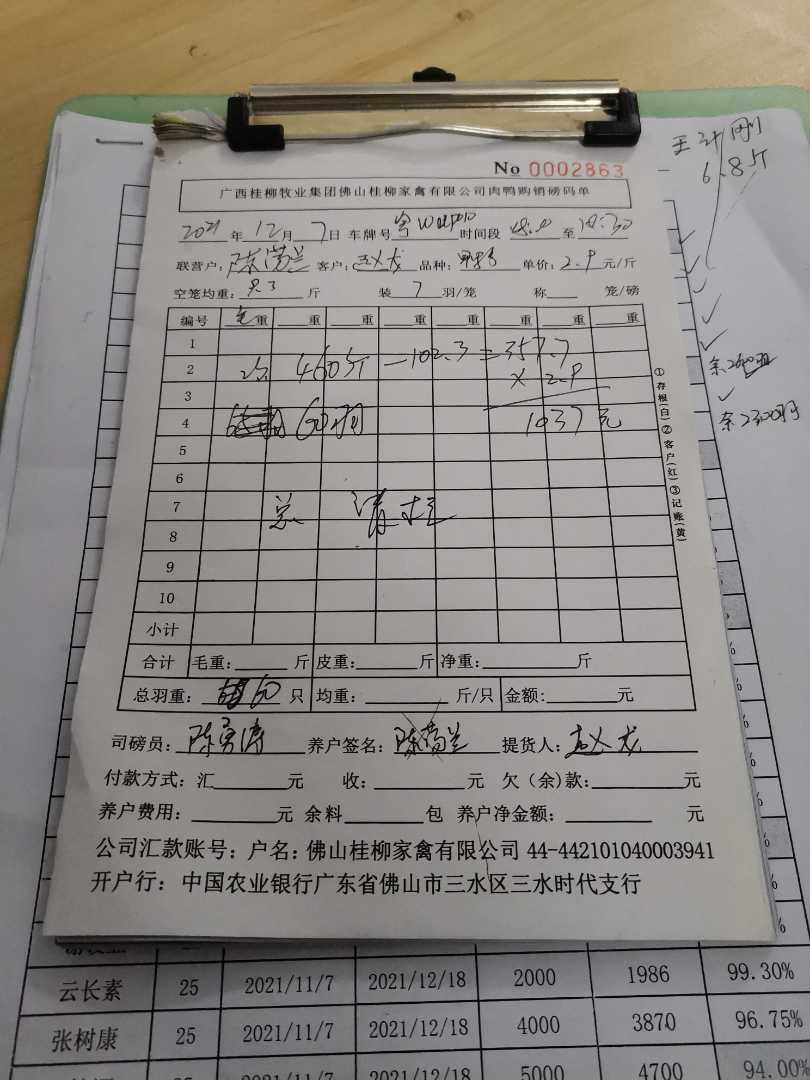 No 0002863
广西桂柳牧业集团佛山桂柳家禽有限公司肉鸭购销磅码单
2021年12月7日 车牌号 粤 时间段 至
联营户: 陈 兰 客户: 赵龙 品种: 单价: 2.9元/斤
空笼均重: 斤 装7羽/笼 称 笼/磅
编号 毛重 重 重 重 重 重 重 重
1
2 460斤-102.3=357.7
3 × 2.9
4 60羽 1037元
5
6
7 总 清
8
9
10
小计
合计 毛重: 斤 皮重: 斤 净重: 斤
总羽重: 60只 均重: 斤/只 金额: 元
司磅员: 陈勇涛 养户签名: 陈 兰 提货人: 赵龙
付款方式: 汇 元 收: 元 欠(余)款: 元
养户费用: 元 余料 包 养户净金额: 元
公司汇款账号: 户名: 佛山桂柳家禽有限公司 44-442101040003941
开户行: 中国农业银行广东省佛山市三水区三水时代支行
①存根(白)②客户(红)③记账(黄)
王 刚
6.8斤
余2300羽
云长素 25 2021/11/7 2021/12/18 2000 1986 99.30%
张树康 25 2021/11/7 2021/12/18 4000 3870 96.75%
2021/11/7 2021/12/18 5000 4700 94.00%